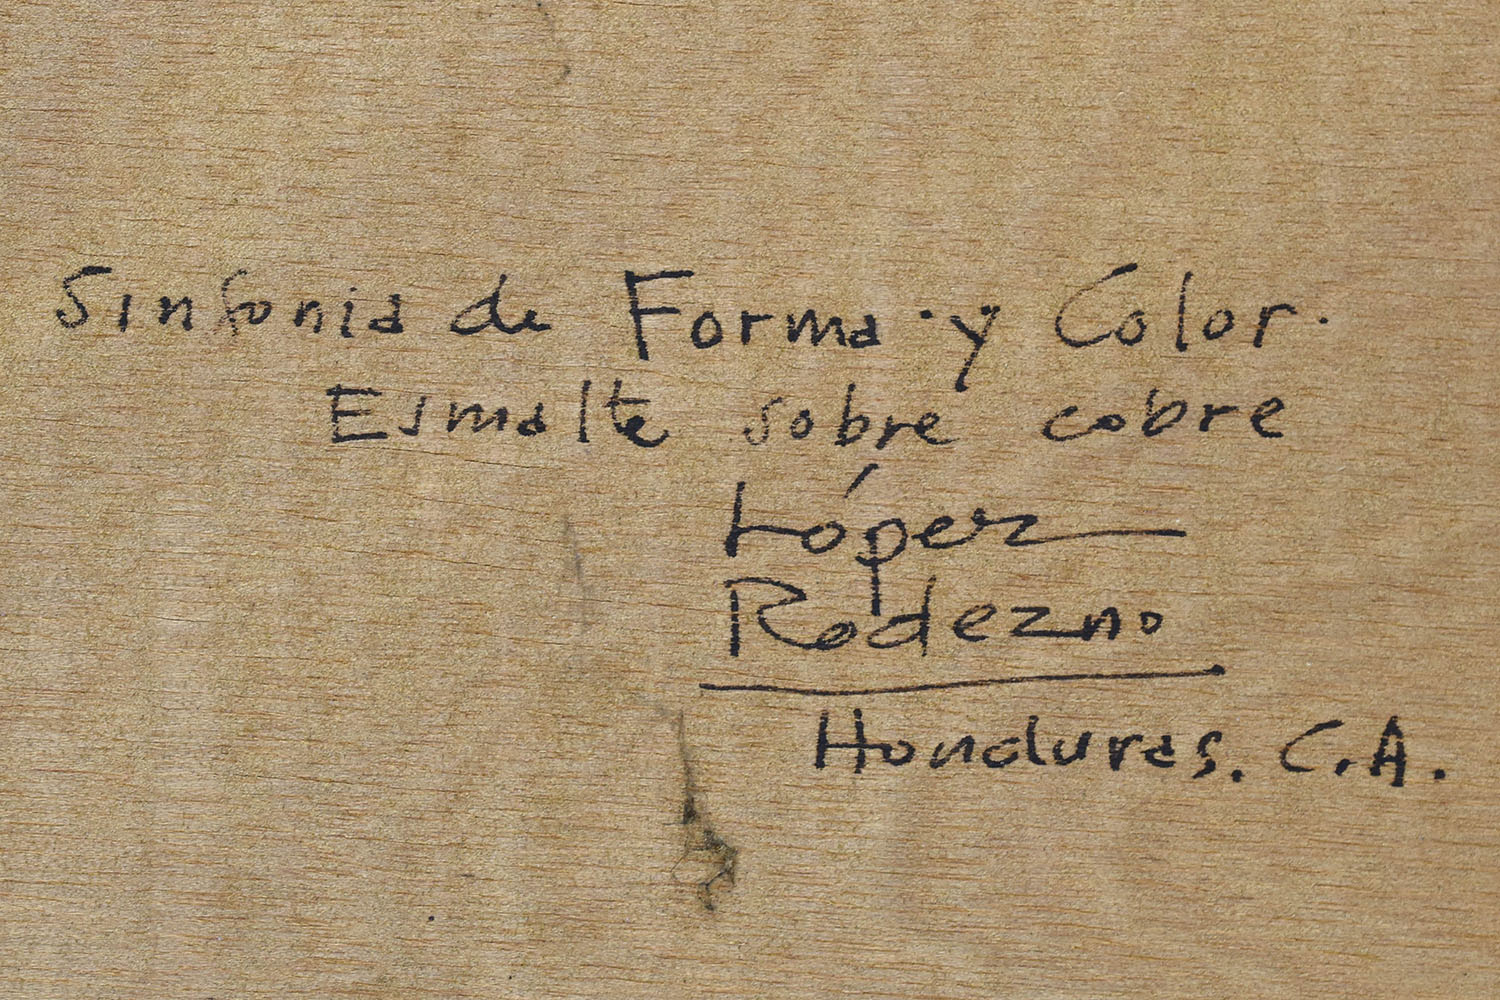 Sinfonia de Forma y Color.
Esmalte sobre cobre
López
Rodezno
Honduras. C.A.